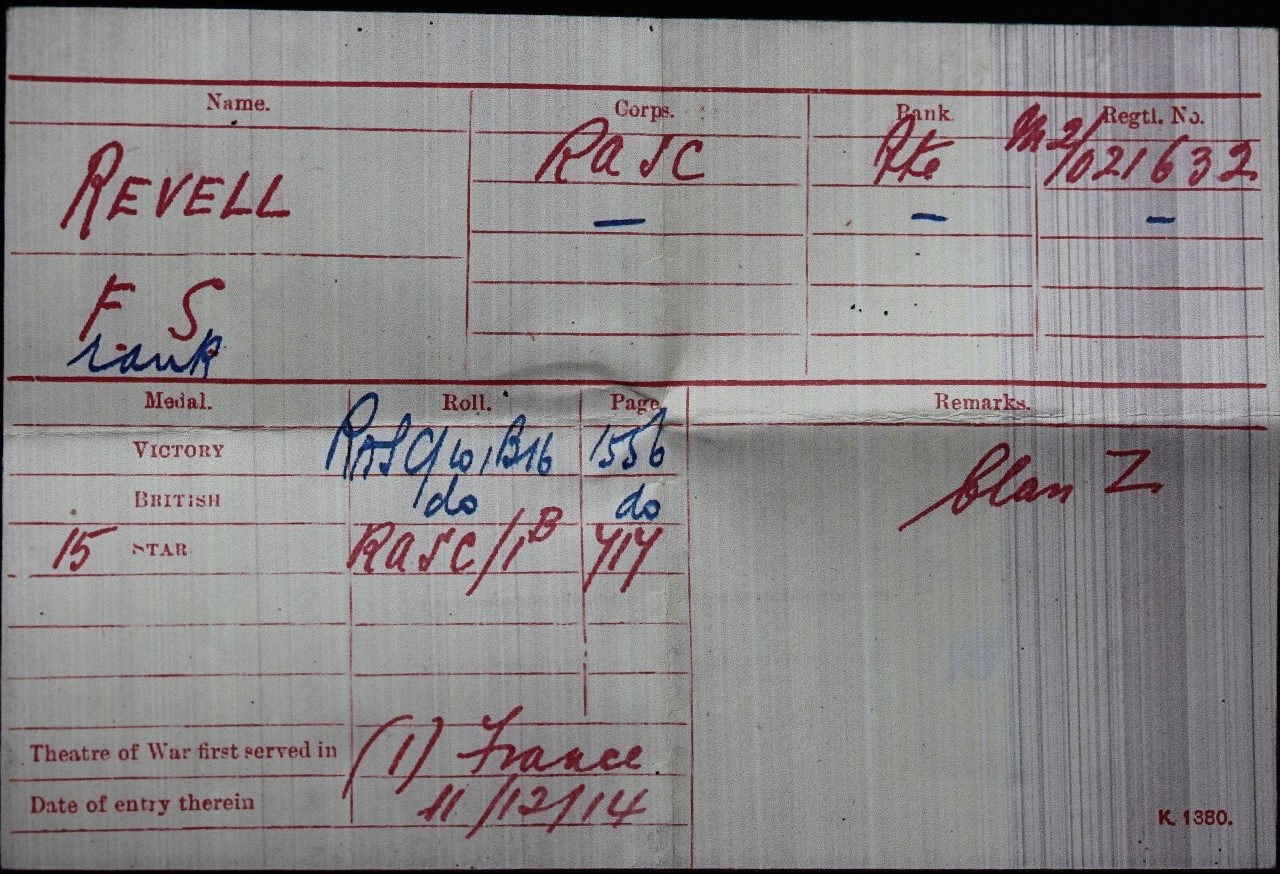 Name. Corps. Rank. Regtl. No.
REVELL RASC Pte M2/021632
— — —
F S
rank
Medal. Roll. Page. Remarks.
VICTORY RASC/101B16 1556 Clas Z
BRITISH do do
15 STAR RASC/1B 717
Theatre of War first served in (1) France.
Date of entry therein 11/12/14
K. 1380.